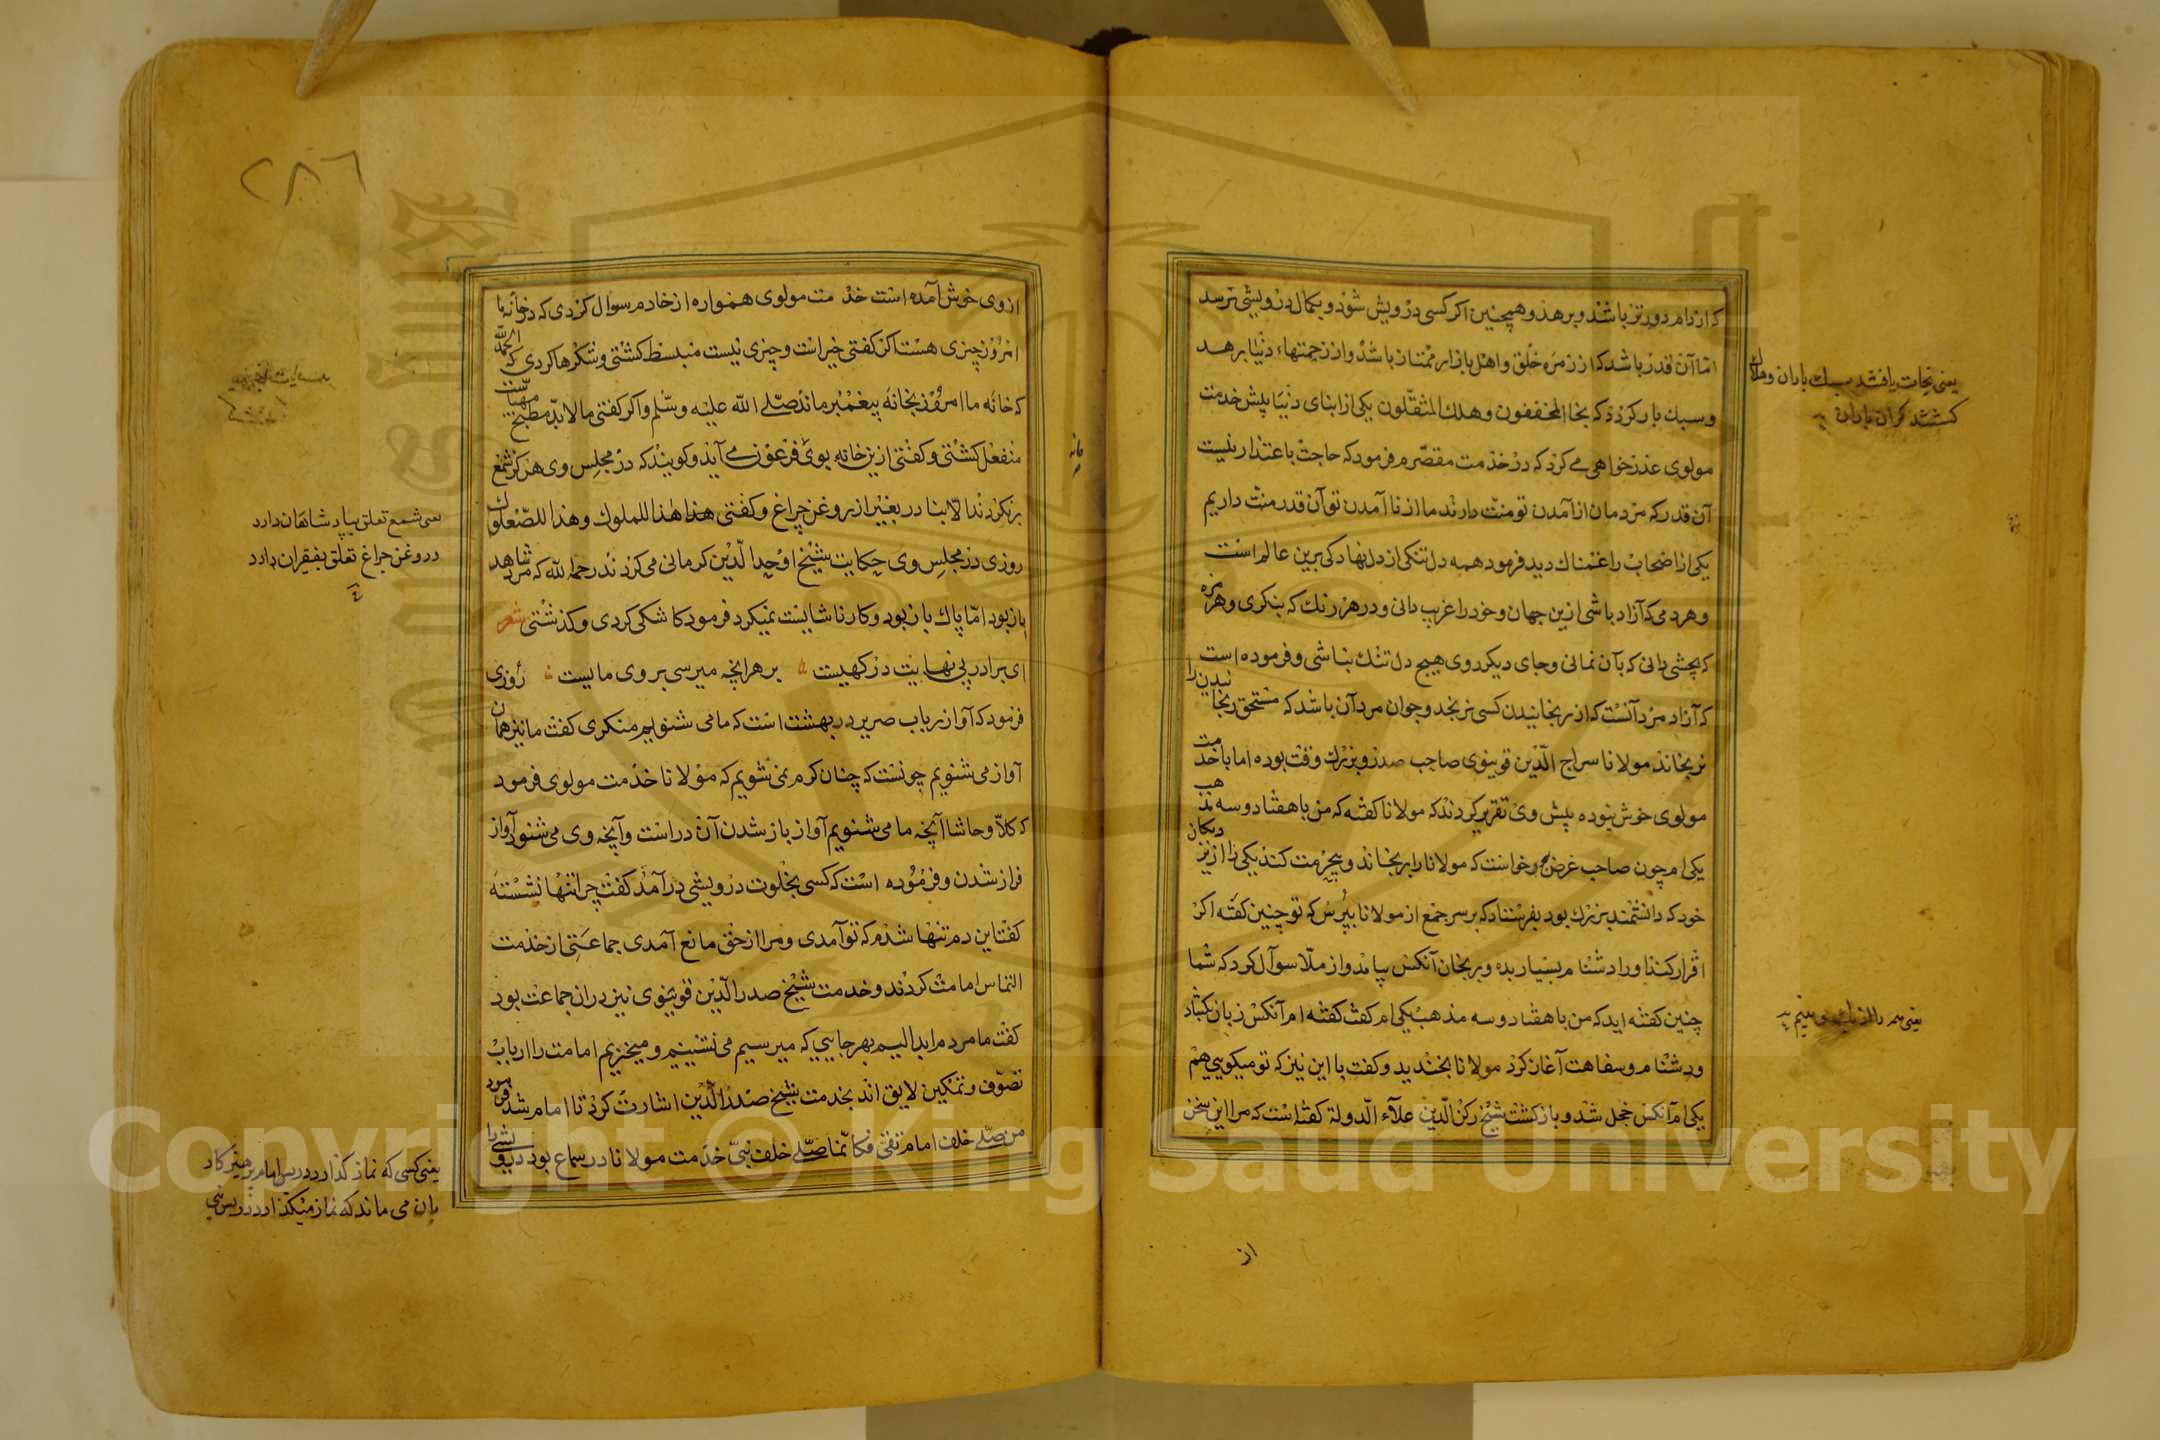 که از دام دورتر باشد و برهد و هیچنین اکر کسی درویش شود و بکمال درویشی نرسد
اما آن قدر باشد که از زمره خلق و اهل بازار ممتاز باشد و از زحمتهاء دنیا برهد
و سبك بار کردد که نجا المخففون و هلك المثقلون یکی از ابنای دنیا پیش خدمت
مولوی عذر خواهی می کرد که در خدمت مقصرم فرمود که حاجت باعتذار نیست
آن قدر که مردمان از آمدن تو منت دارند ما از نا آمدن تو آن قدر منت داریم
یکی از اصحاب را غمناك دید فرمود همه دل تنکی از دل نهادکی برین عالم است
و هر دمی که آزاد باشی ازین جهان و خود را غریب دانی و در هر رنك که بنکری و هر مزه
که بچشی دانی که بآن نمانی و جای دیکر روی هیچ دل تنك نباشی و فرموده است
که آزاد مرد آنست که از رنجانیدن کسی نرنجد و جوان مرد آن باشد که مستحق رنجانیدن را
نرنجاند مولانا سراج الدین قوینوی صاحب صدر و بزرك وقت بوده اما با خدمت
مولوی خوش نبوده پیش وی تقریر کردند که مولانا کفته که من با هفتاد و سه مذهب
یکی ام چون صاحب غرض بود خواست که مولانا را برنجاند و بیحرمت کند یکی را از نزدیکان
خود که دانشمند بزرك بود بفرستاد که بر سر جمع از مولانا بپرس که تو چنین کفته اکر
اقرار کند او را دشنام بسیار بده و برنجان آنکس بیامد و از ملا سوآل کرد که شما
چنین کفته اید که من با هفتاد و سه مذهب یکی ام کفت کفته ام آنکس زبان بکشاد
و دشنام و سفاهت آغاز کرد مولانا بخندید و کفت با این نیز که تو میکویی هم
یکی ام آنکس خجل شد و باز کشت شیخ رکن الدین علاء الدوله کفته است که مرا این سخن
از
یعنی نجات یافتند سبك باران و هلاك
کشتند کران باران
از وی خوش آمده است خدمت مولوی همواره از خادم سوال کردی که در خانه ما
امروز چیزی هست اکر کفتی خیر است و چیزی نیست منبسط کشتی و شکرها کردی که الحمد لله
که خانه ما امروز بخانه پیغمبر ماند صلی الله علیه وسلم و اکر کفتی ما لابد مطبخ مهیاست
منفعل کشتی و کفتی ازین خانه بوی فرعون می آید و کویند که در مجلس وی هرکز شمع
برنکردند الا بنادر بغیر از روغن چراغ و کفتی هذا هذا للملوك و هذا للصعلوك
روزی در مجلس وی حکایت شیخ اوحد الدین کرمانی می کردند رحمه الله که مردی شاهد
باز بود اما پاك باز بود و کار ناشایست نمیکرد فرمود کاشکی کردی و کذشتی شعر
ای برادر بی نهایت درکهیست ۵ بر هرانچه میرسی بر وی مایست ۵ روزی
فرمود که آواز رباب صریر در بهشت است که ما می شنویم منکری کفت ما نیز همان
آواز می شنویم چونست که چنان کرم نمی شویم که مولانا خدمت مولوی فرمود
که کلا و حاشا آنچه ما می شنویم آواز باز شدن آن در است و آنچه وی می شنود آواز
فراز شدن و فرموده است که کسی بخلوت درویشی در آمد کفت چرا تنها نشسته
کفت این دم تنها شدم که تو آمدی و مرا از حق مانع آمدی جماعتی از خدمت
التماس امامت کردند و خدمت شیخ صدر الدین قوینوی نیز در ان جماعت بود
کفت ما مردم ابدالیم بهر جایی که میرسیم می نشینیم و میخیزیم امامت را ارباب
تصوف و تمکین لایق اند بخدمت شیخ صدر الدین اشارت کرد تا امام شد فرمود
من صلی خلف امام تقی فکانما صلی خلف نبی خدمت مولانا در سماع بود درویشی را
خانه
۲۸۶
یعنی شمع تعلق بپادشاهان دارد
و روغن چراغ تعلق بفقیران دارد
یعنی کسی که نماز کذارد در پس امام پرهیزکار
بان می ماند که نماز میکذارد در پس نبی
Copyright © King Saud University
1957